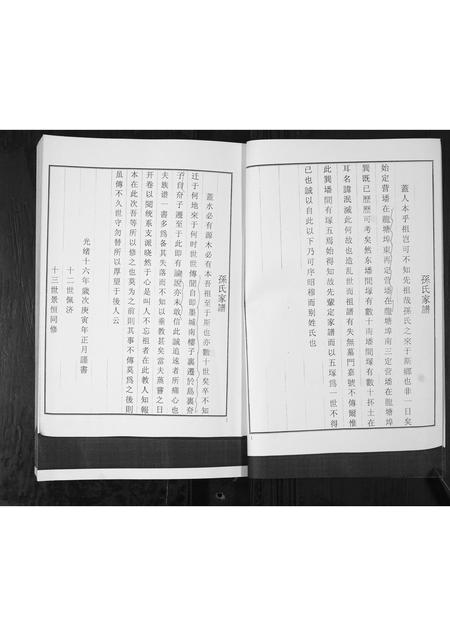 孫氏家譜
蓋人本乎祖豈可不知先祖哉孫氏之來于斯鄉也非一日矣
始定營墦在龍塘埠東再定營墦在龍塘埠南三定營墦在龍塘埠
巽既已歷歷可考矣然东墦間塚有數十南墦間塚有數十抔土在
耳名諱泯滅此何故也造乱世而祖譜有失無墓門嘉號不傳爾惟
此巽墦間有塚五焉始得知故先輩定家譜而以五塚為一世不得
已也誠以自此以下乃可序昭穆而別姓氏也
孫氏家譜
蓋水必有源木必有本吾祖至于斯也亦數十世矣卒不知
迁于何地來于何时世世傳聞自即墨城南樓子裏遷於島裏奇
子自奇子遷至于此即有諭說亦未敢信此誠追遠者所痛心也
夫族谱一書多為备其失落而不知以垂教甚矣當夫蒸嘗之日
开卷以閱统系支派晓然于心是叫人不忘祖者在此教人知報
本在此次吾等所以修之也莫为之前則其事不傳莫為之後則
虽傳不久世守勿替所以厚望于後人云
光緒十六年歲次庚寅年正月謹書
十二世佩济
十三世景恒同修